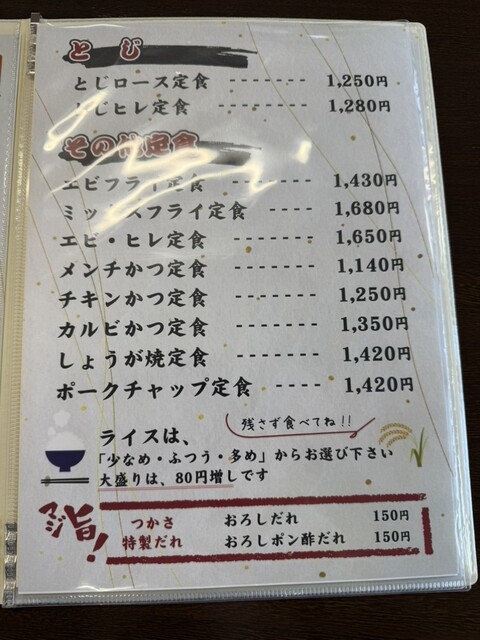 とじ
とじロース定食 -------- 1,250円
とじヒレ定食 -------- 1,280円
その他定食
エビフライ定食 -------- 1,430円
ミックスフライ定食 ---- 1,680円
エビ・ヒレ定食 -------- 1,650円
メンチかつ定食 -------- 1,140円
チキンかつ定食 -------- 1,250円
カルビかつ定食 -------- 1,350円
しょうが焼定食 ------- 1,420円
ポークチャップ定食 ----- 1,420円
残さず食べてね!!
ライスは、
「少なめ・ふつう・多め」からお選び下さい
大盛りは、80円増しです
マジ旨!
つかさ おろしだれ 150円
特製だれ おろしポン酢だれ 150円